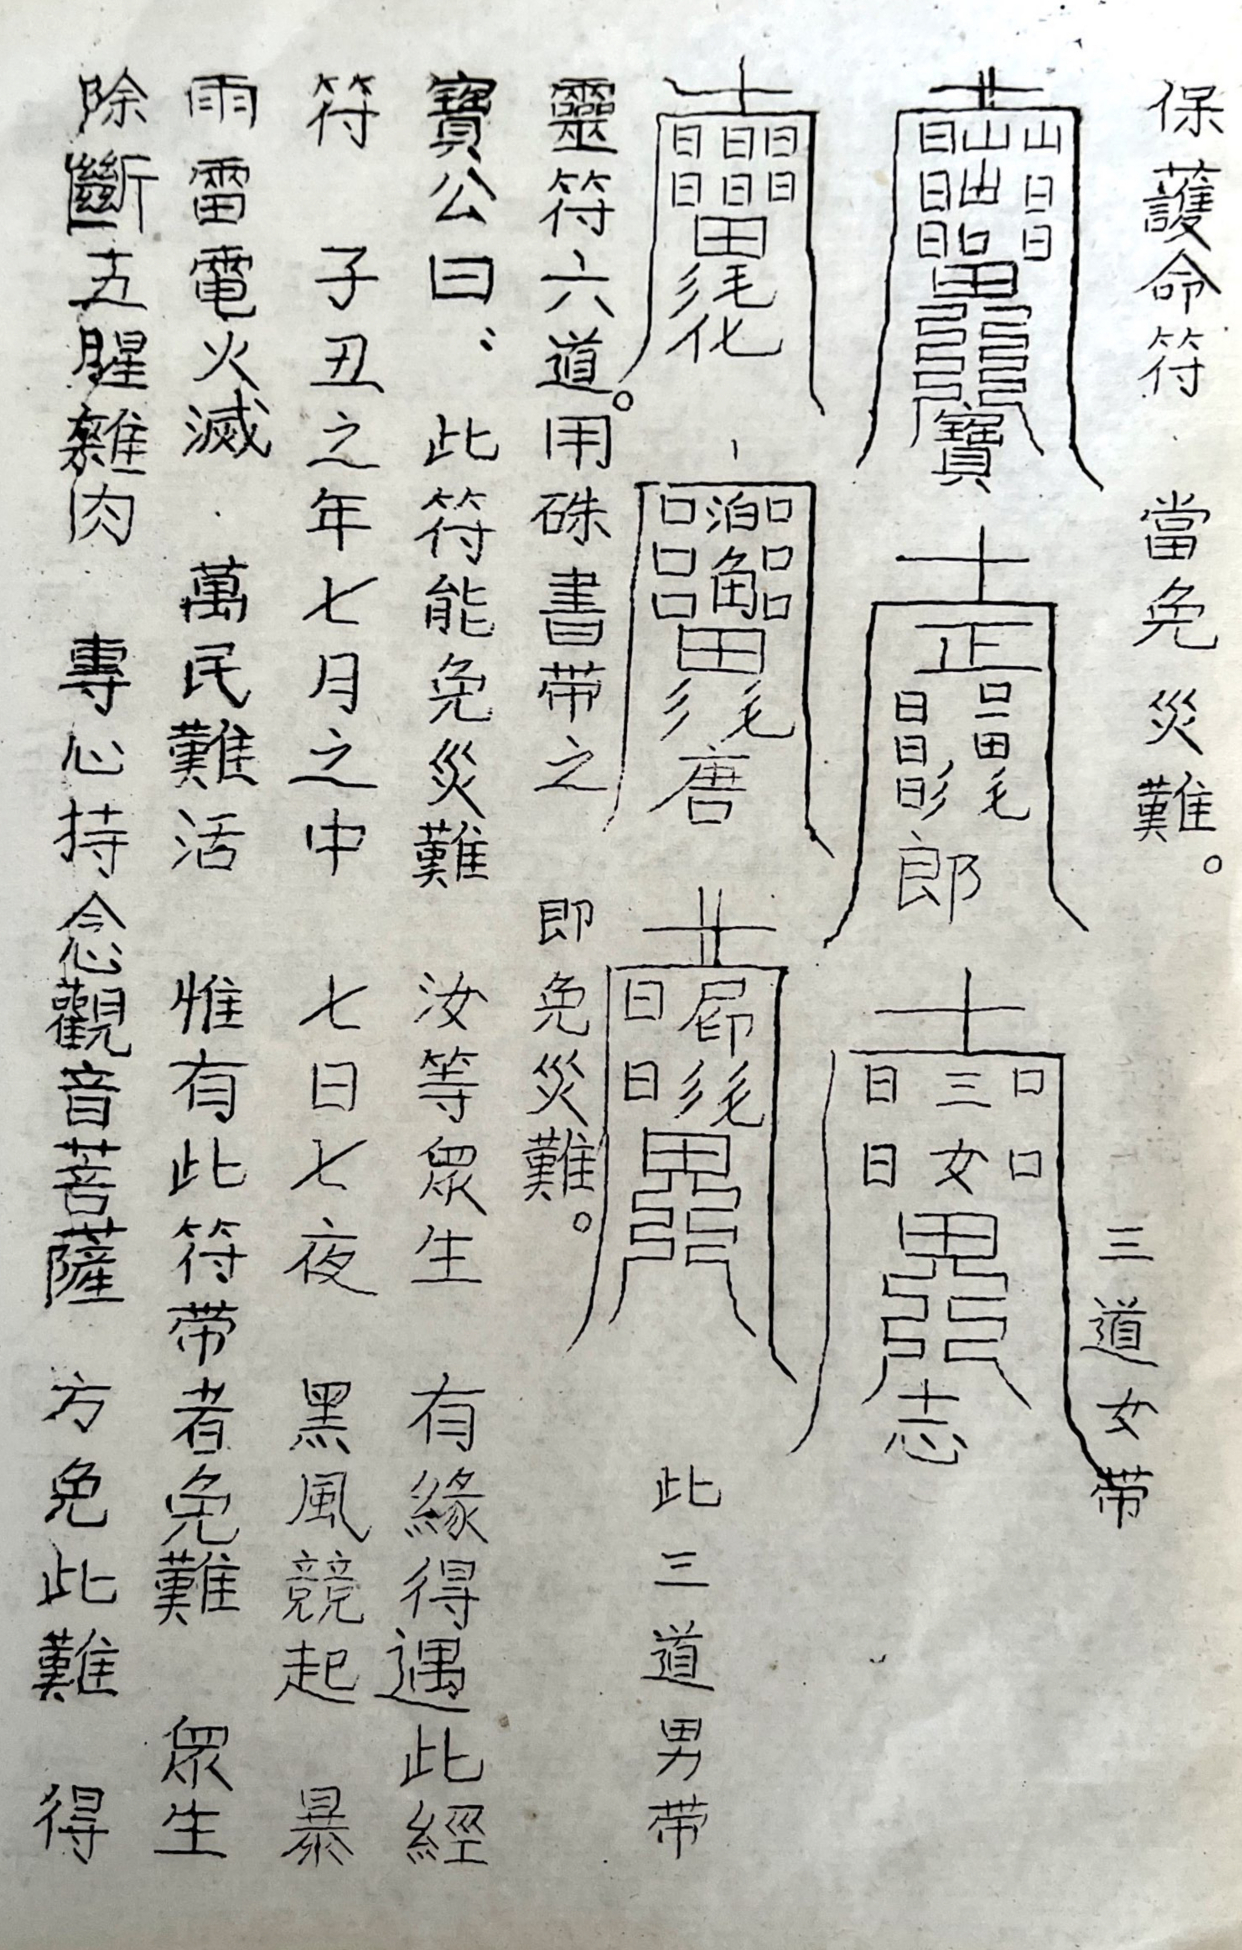 保護命符 當免災難。
寶
正
郎
三女
志
三道女帶
化
唐
此三道男帶
靈符六道。用硃書帶之 即免災難。
寶公曰: 此符能免災難 汝等眾生 有緣得遇此經
符 子丑之年七月之中 七日七夜 黑風競起 暴
雨雷電火滅 萬民難活 惟有此符帶者免難 眾生
除斷五腥雜肉 專心持念觀音菩薩 方免此難 得